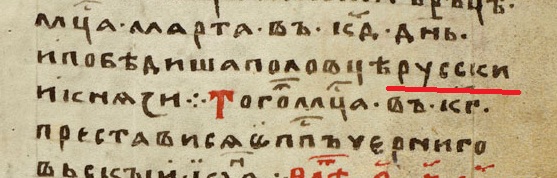 мц҃а·марта·въ·к҃д·днь·
ипобѣдишаполовцѣрусски
икнѧзи⁘Тогоⷤмц҃а·въ·к҃г.
престависѧѿпп҃ъчерниго